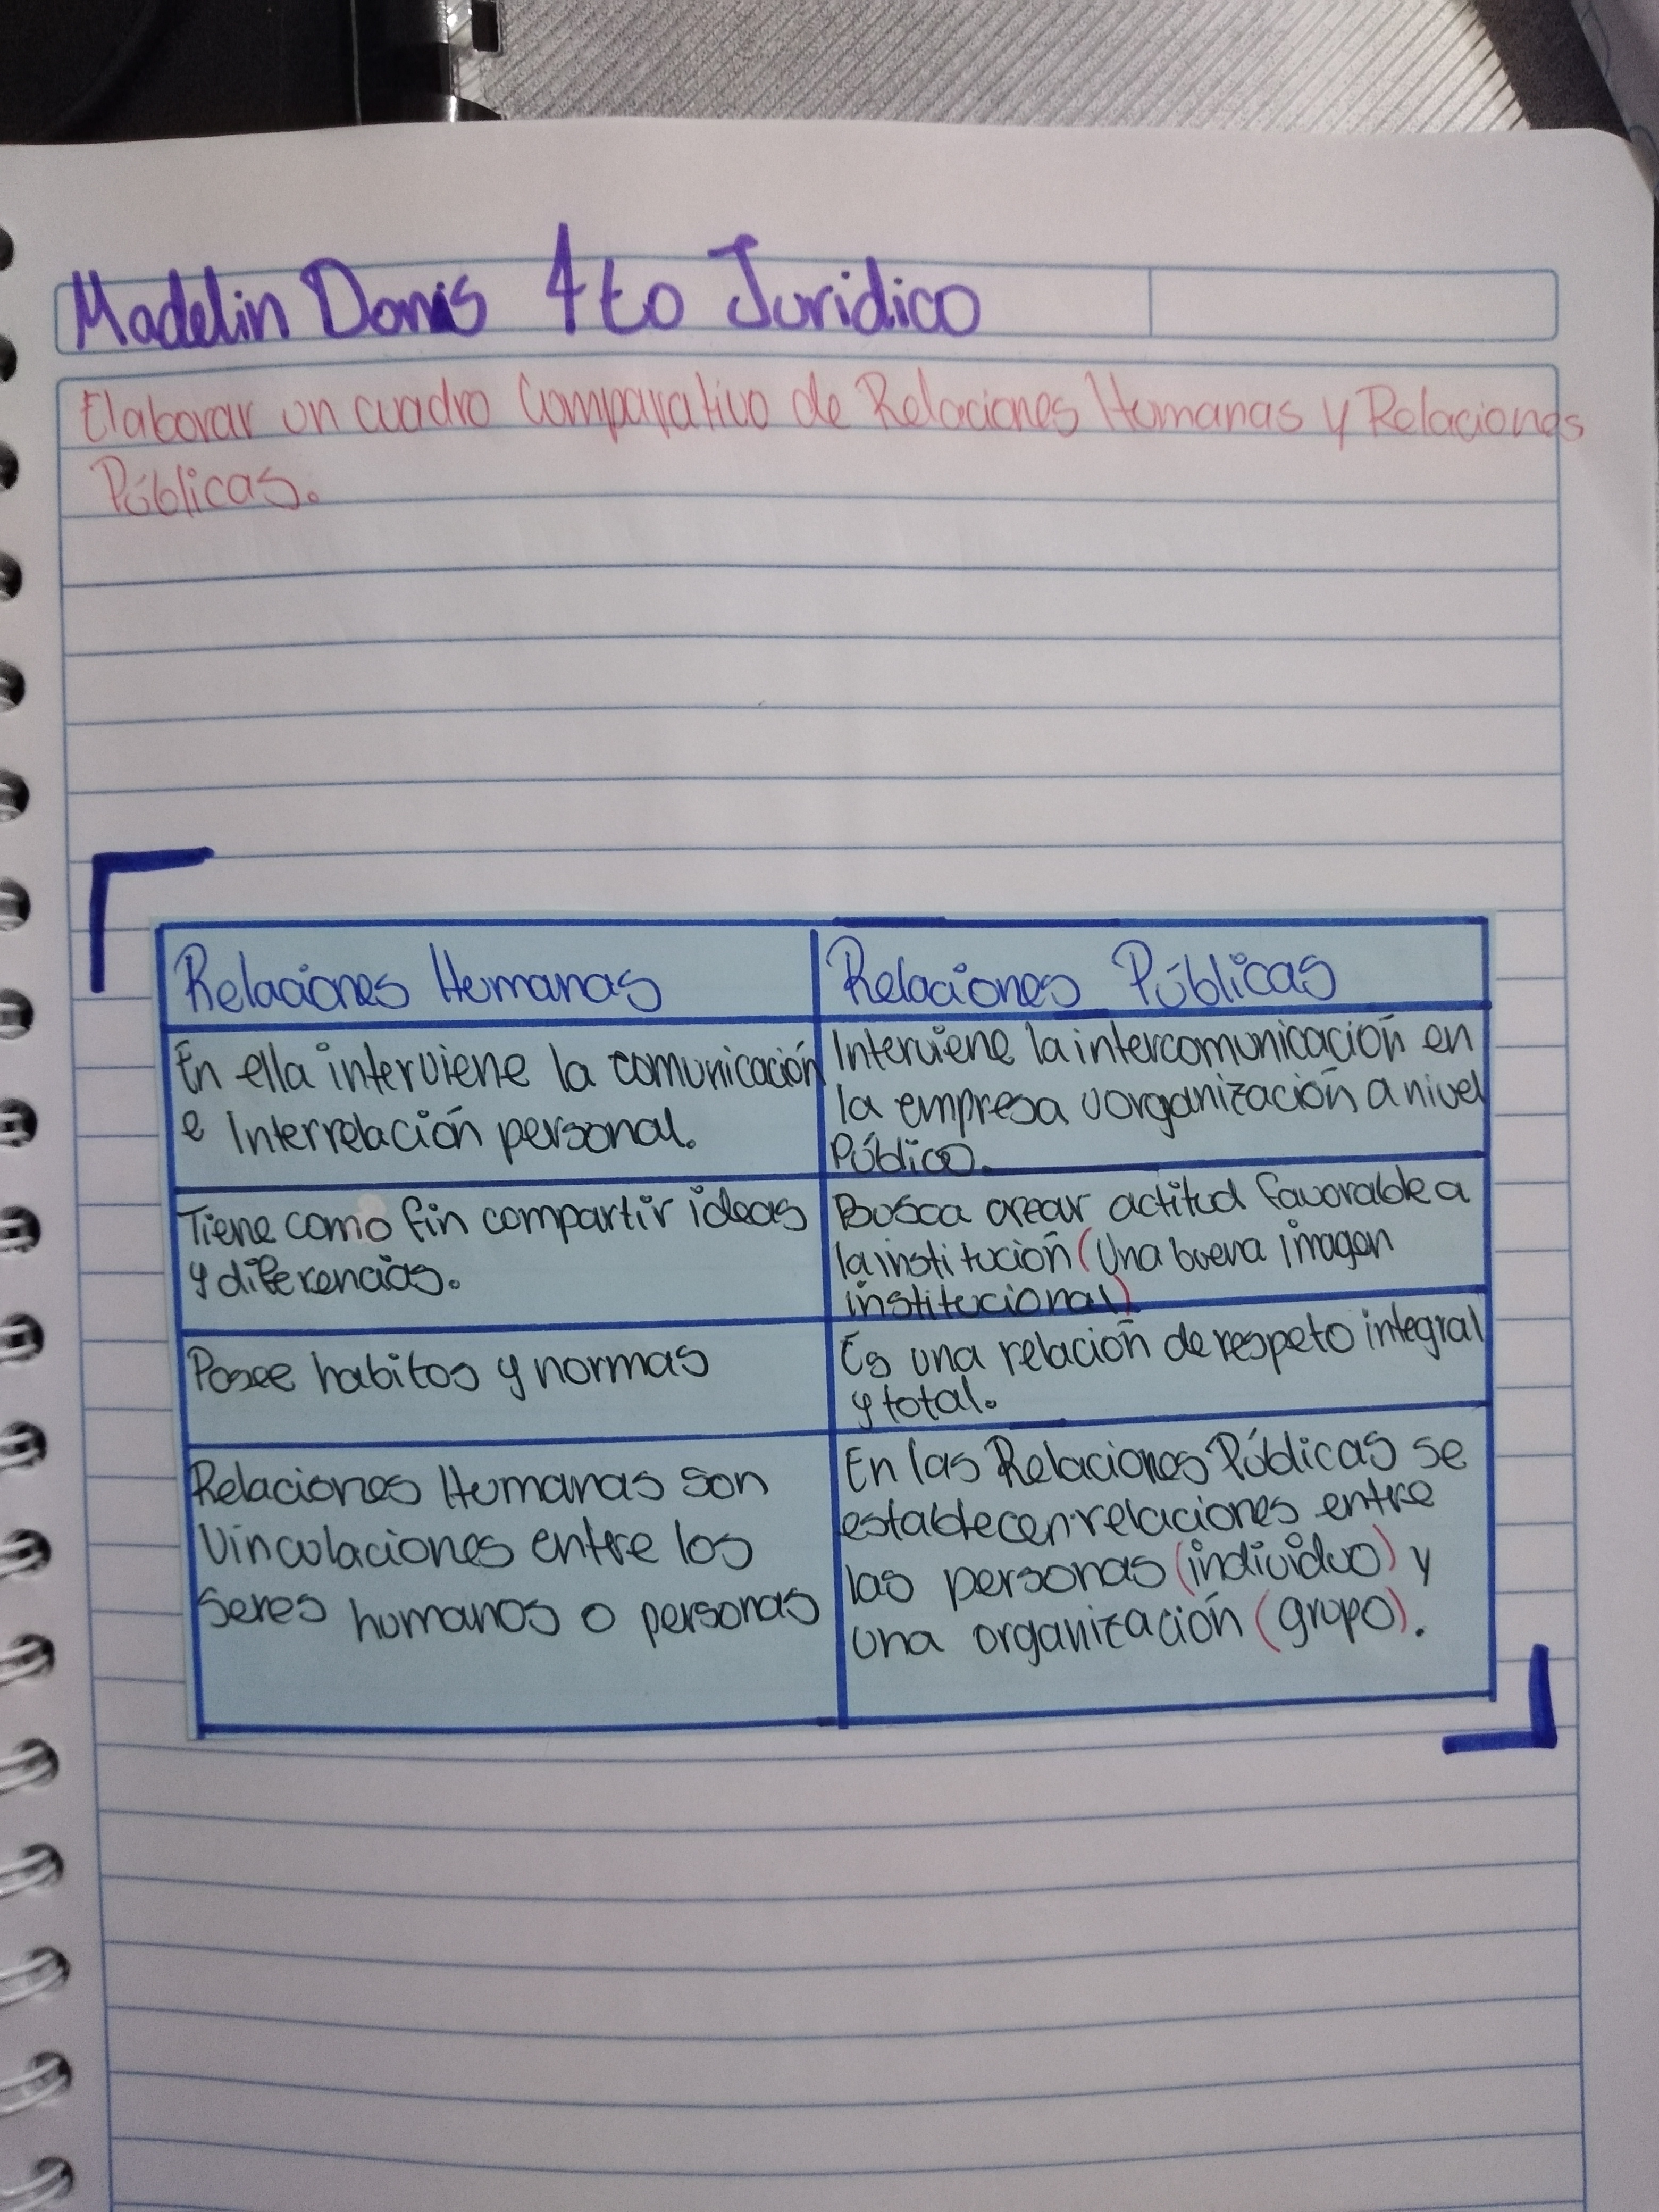 Madelin Donis 4to Juridico
Elaborar un cuadro Comparativo de Relaciones Humanas y Relaciones
Públicas.
Relaciones Humanas
Relaciones Públicas
En ella interviene la comunicación
e Interrelación personal.
Interviene la intercomunicación en
la empresa u organización a nivel
Público.
Tiene como fin compartir ideas
y diferencias.
Busca crear actitud favorable a
la institución (Una buena imagen
institucional)
Posee habitos y normas
Es una relación de respeto integral
y total.
Relaciones Humanas son
Vinculaciones entre los
Seres humanos o personas
En las Relaciones Públicas se
establecen relaciones entre
las personas (individuo) y
una organización (grupo).